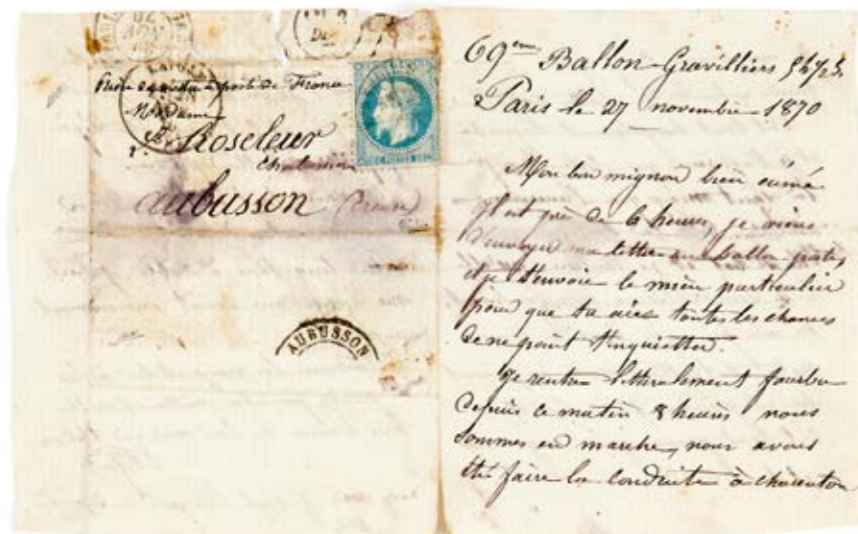 Prière au poste de France
Madame
Roseleur
aubusson (Creuse)
AUBUSSON
69eme Ballon-Gravilliers 5h/25.
Paris le 27 novembre 1870
Mon bon mignon bien aimé
Il est près de 6 heures, je viens
d'envoyer ma lettre au ballon poste,
et je t'envoie le mien particulier
pour que tu aies toutes les chances
de ne point t'inquietter.
Je rentre litteralement fourbu
depuis ce matin 8 heures nous
sommes en marche, nous avons
été faire la conduite à charenton